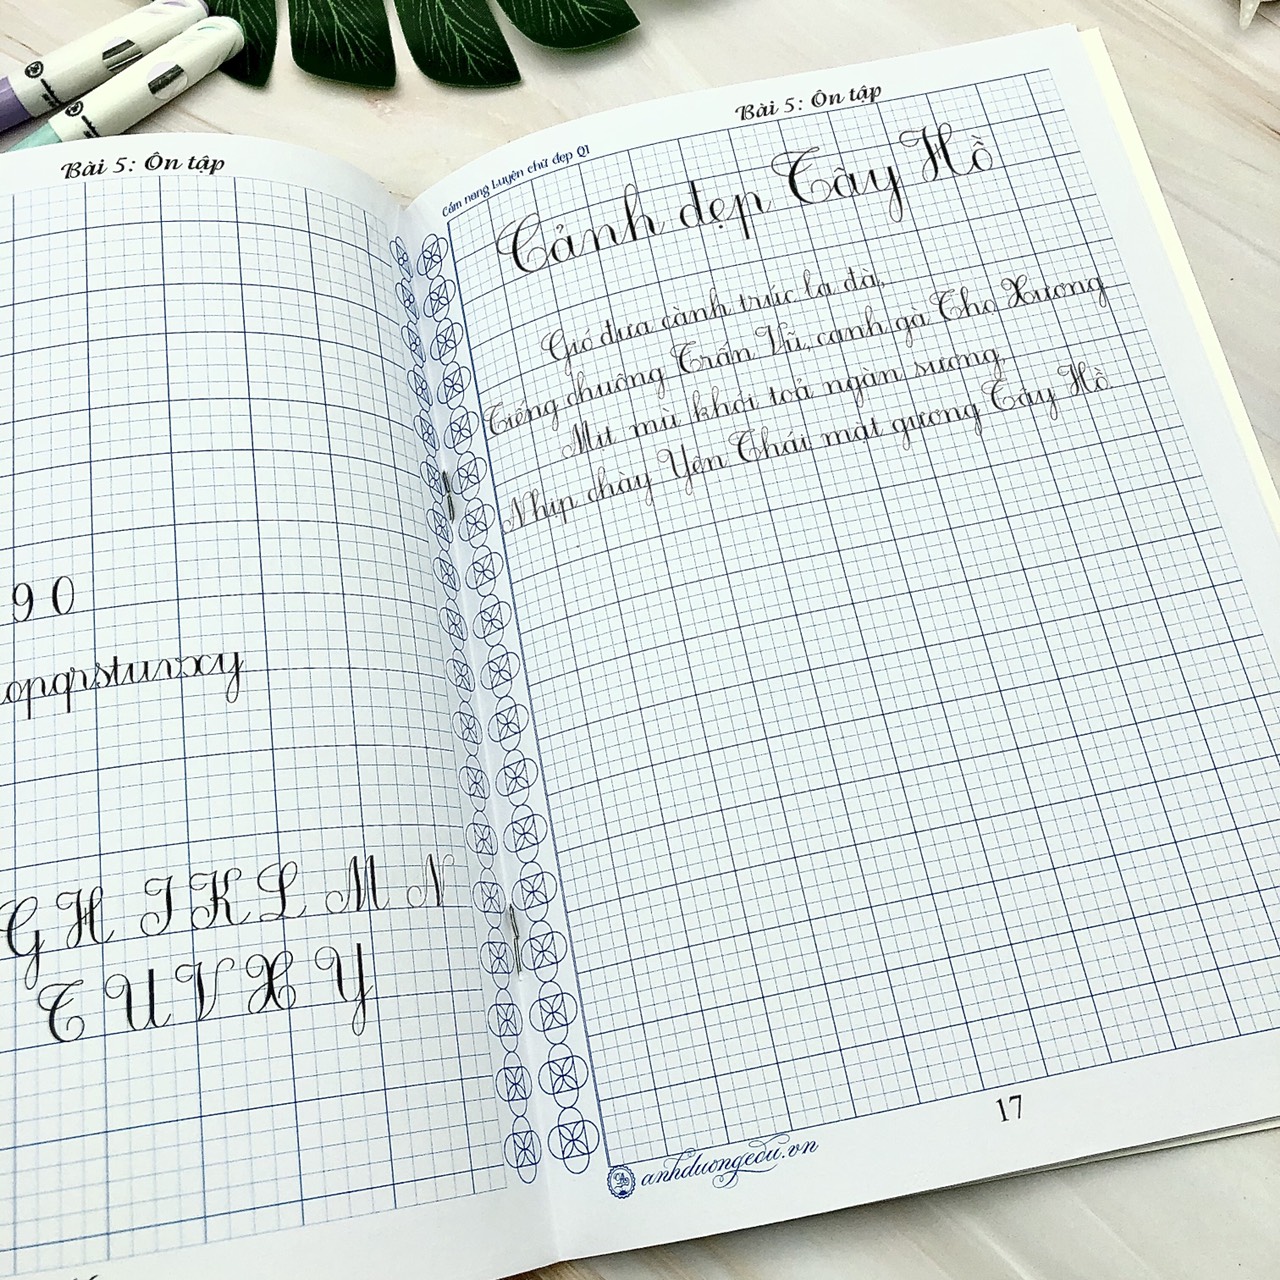 Bài 5: Ôn tập
9 0
opqrstuvxy
G H I K L M N
T U V X Y
Bài 5: Ôn tập
Cẩm nang Luyện chữ đẹp Q1
Cảnh đẹp Tây Hồ
Gió đưa cành trúc la đà,
Tiếng chuông Trấn Vũ, canh gà Thọ Xương
Mịt mù khói toả ngàn sương,
Nhịp chày Yên Thái mặt gương Tây Hồ
17
anhduongedu.vn